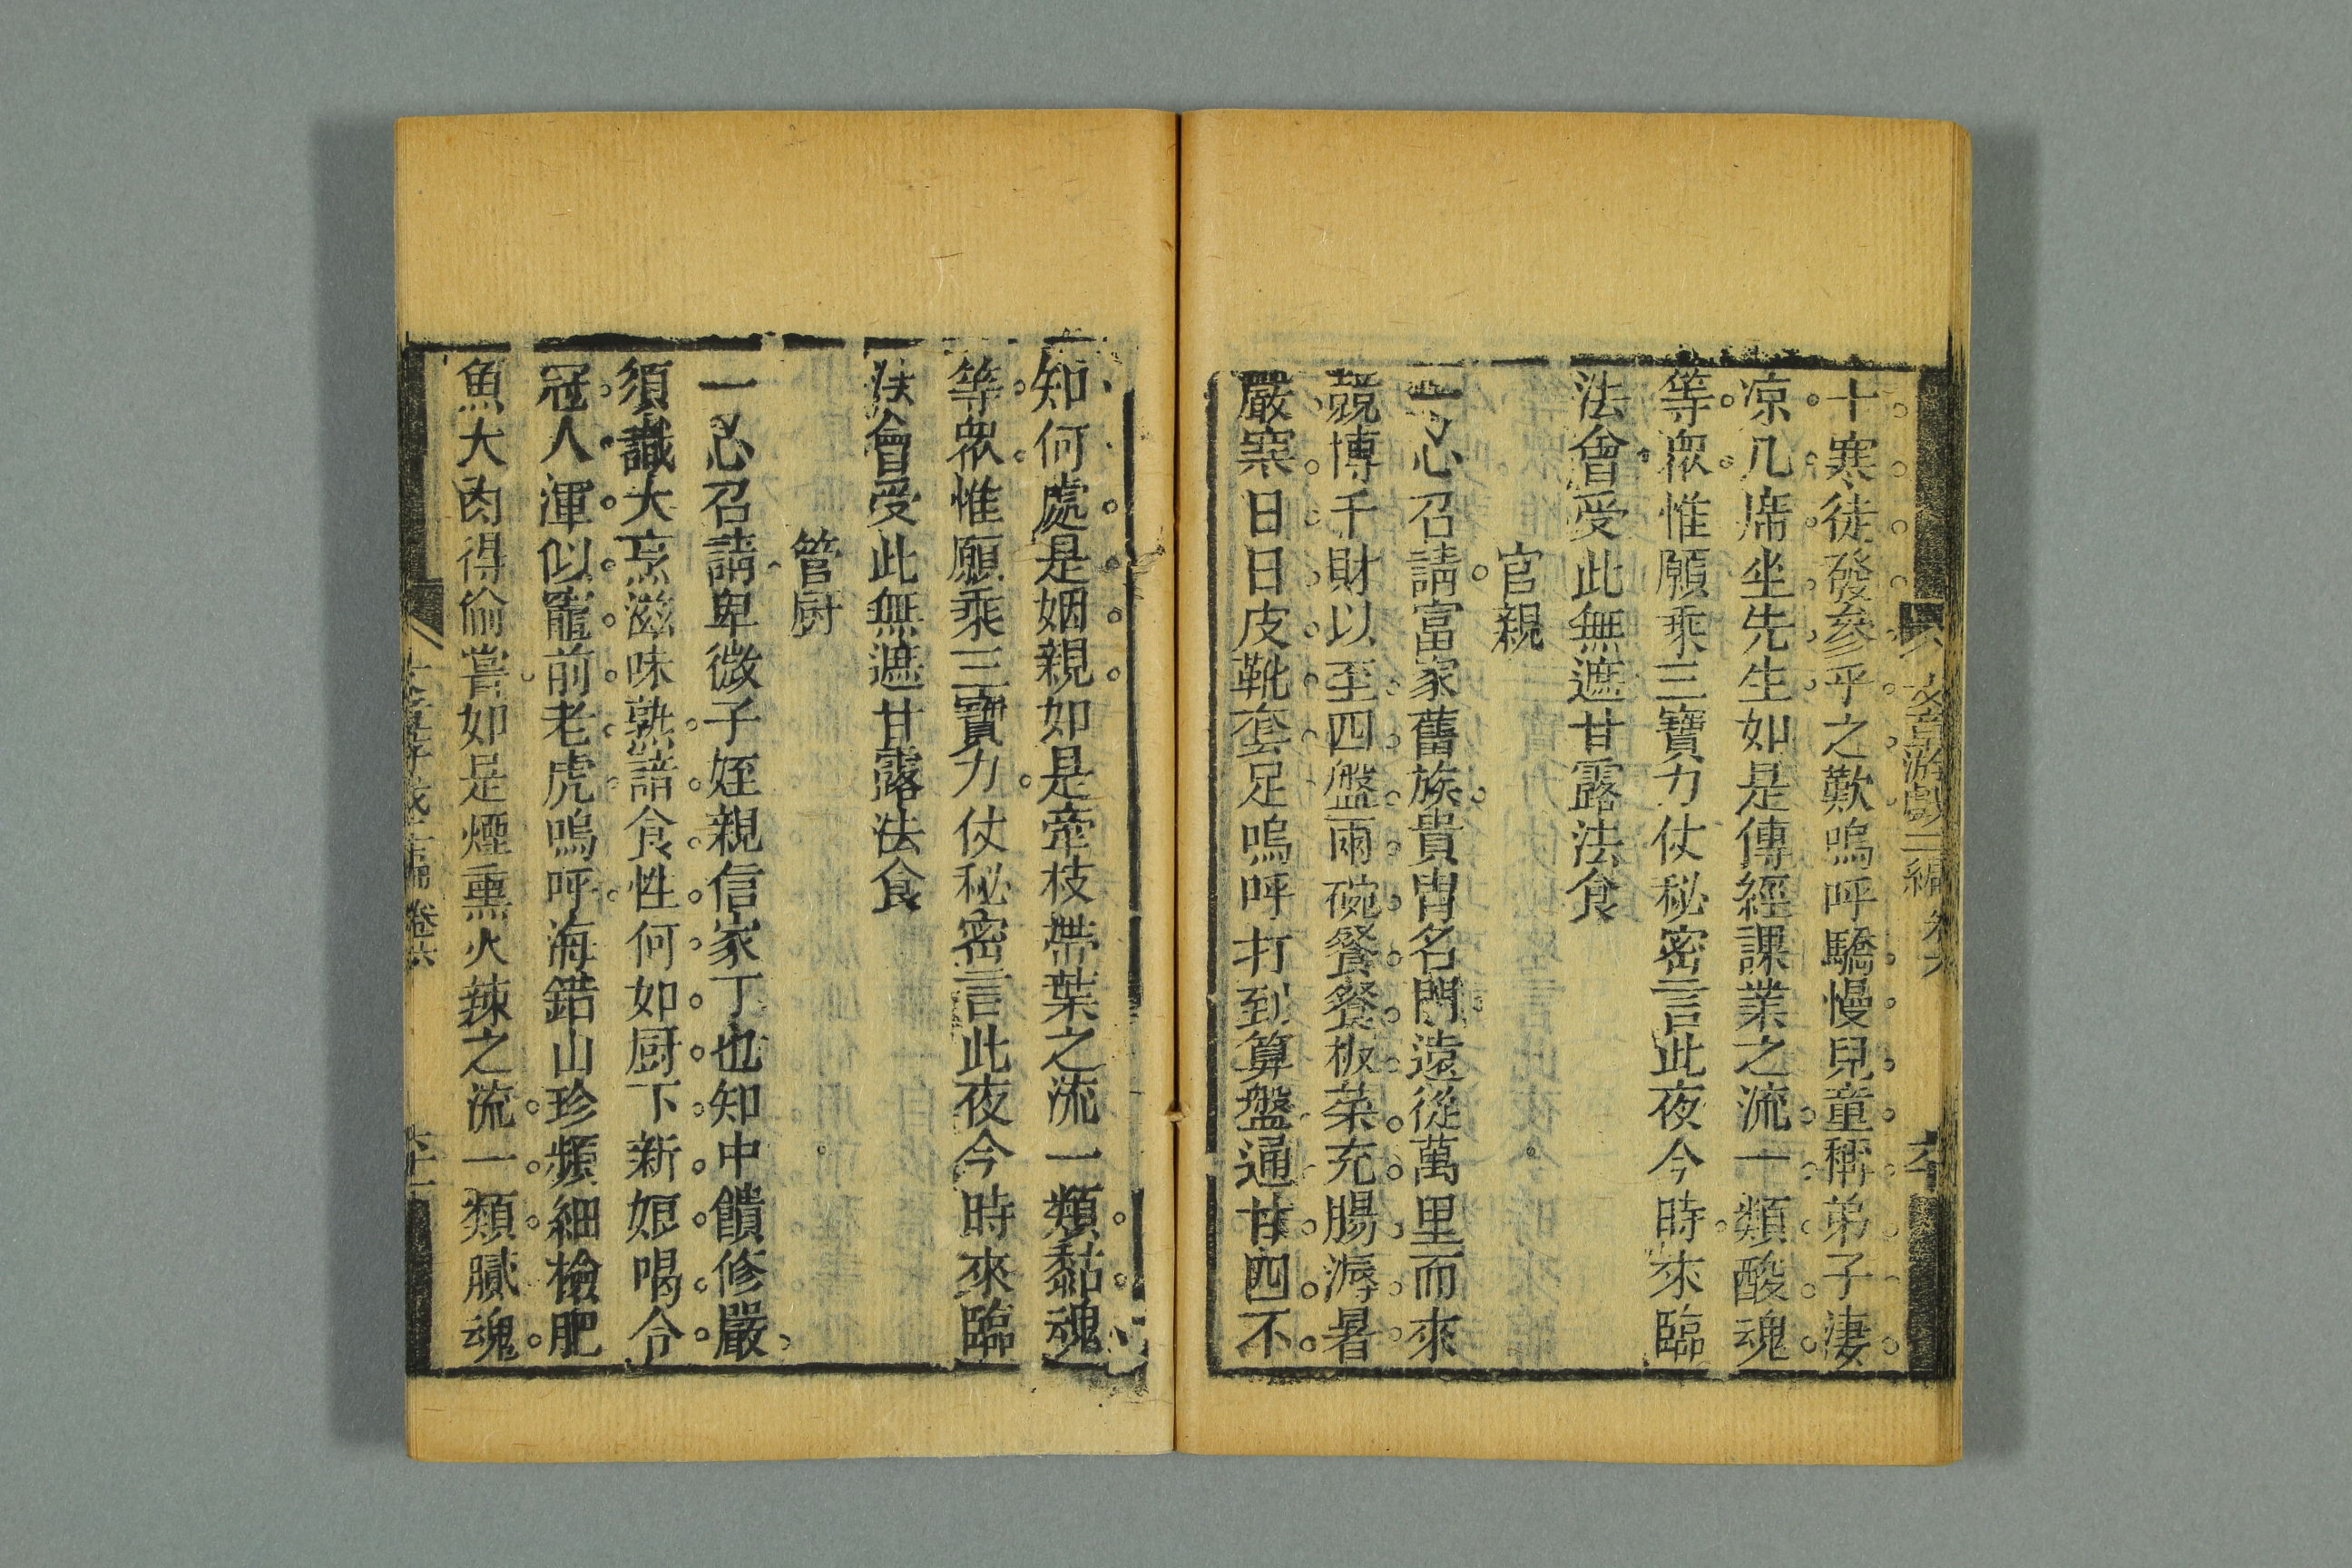 文章游戲二編 卷六 六十
十寒徒發參乎之歎嗚呼驕慢兒童稱弟子淒
凉几席坐先生如是傳經課業之流一類酸魂
等衆惟願乘三寶力仗秘密言此夜今時來臨
法會受此無遮甘露法食
官親
一心召請富家舊族貴胄名門遠從萬里而來
競博千財以至四盤兩碗餐餐板菜充腸溽暑
嚴寒日日皮靴套足嗚呼打到算盤通甘四不
知何處是姻親如是牽枝帶葉之流一類黏魂
等衆惟願乘三寶力仗秘密言此夜今時來臨
法會受此無遮甘露法食
管厨
一心召請卑微子姪親信家丁也知中饋修嚴
須識大烹滋味熟諳食性何如厨下新娘喝令
冠人渾似竈前老虎嗚呼海錯山珍頻細檢肥
魚大肉得偷嘗如是煙熏火辣之流一類膩魂
卷六